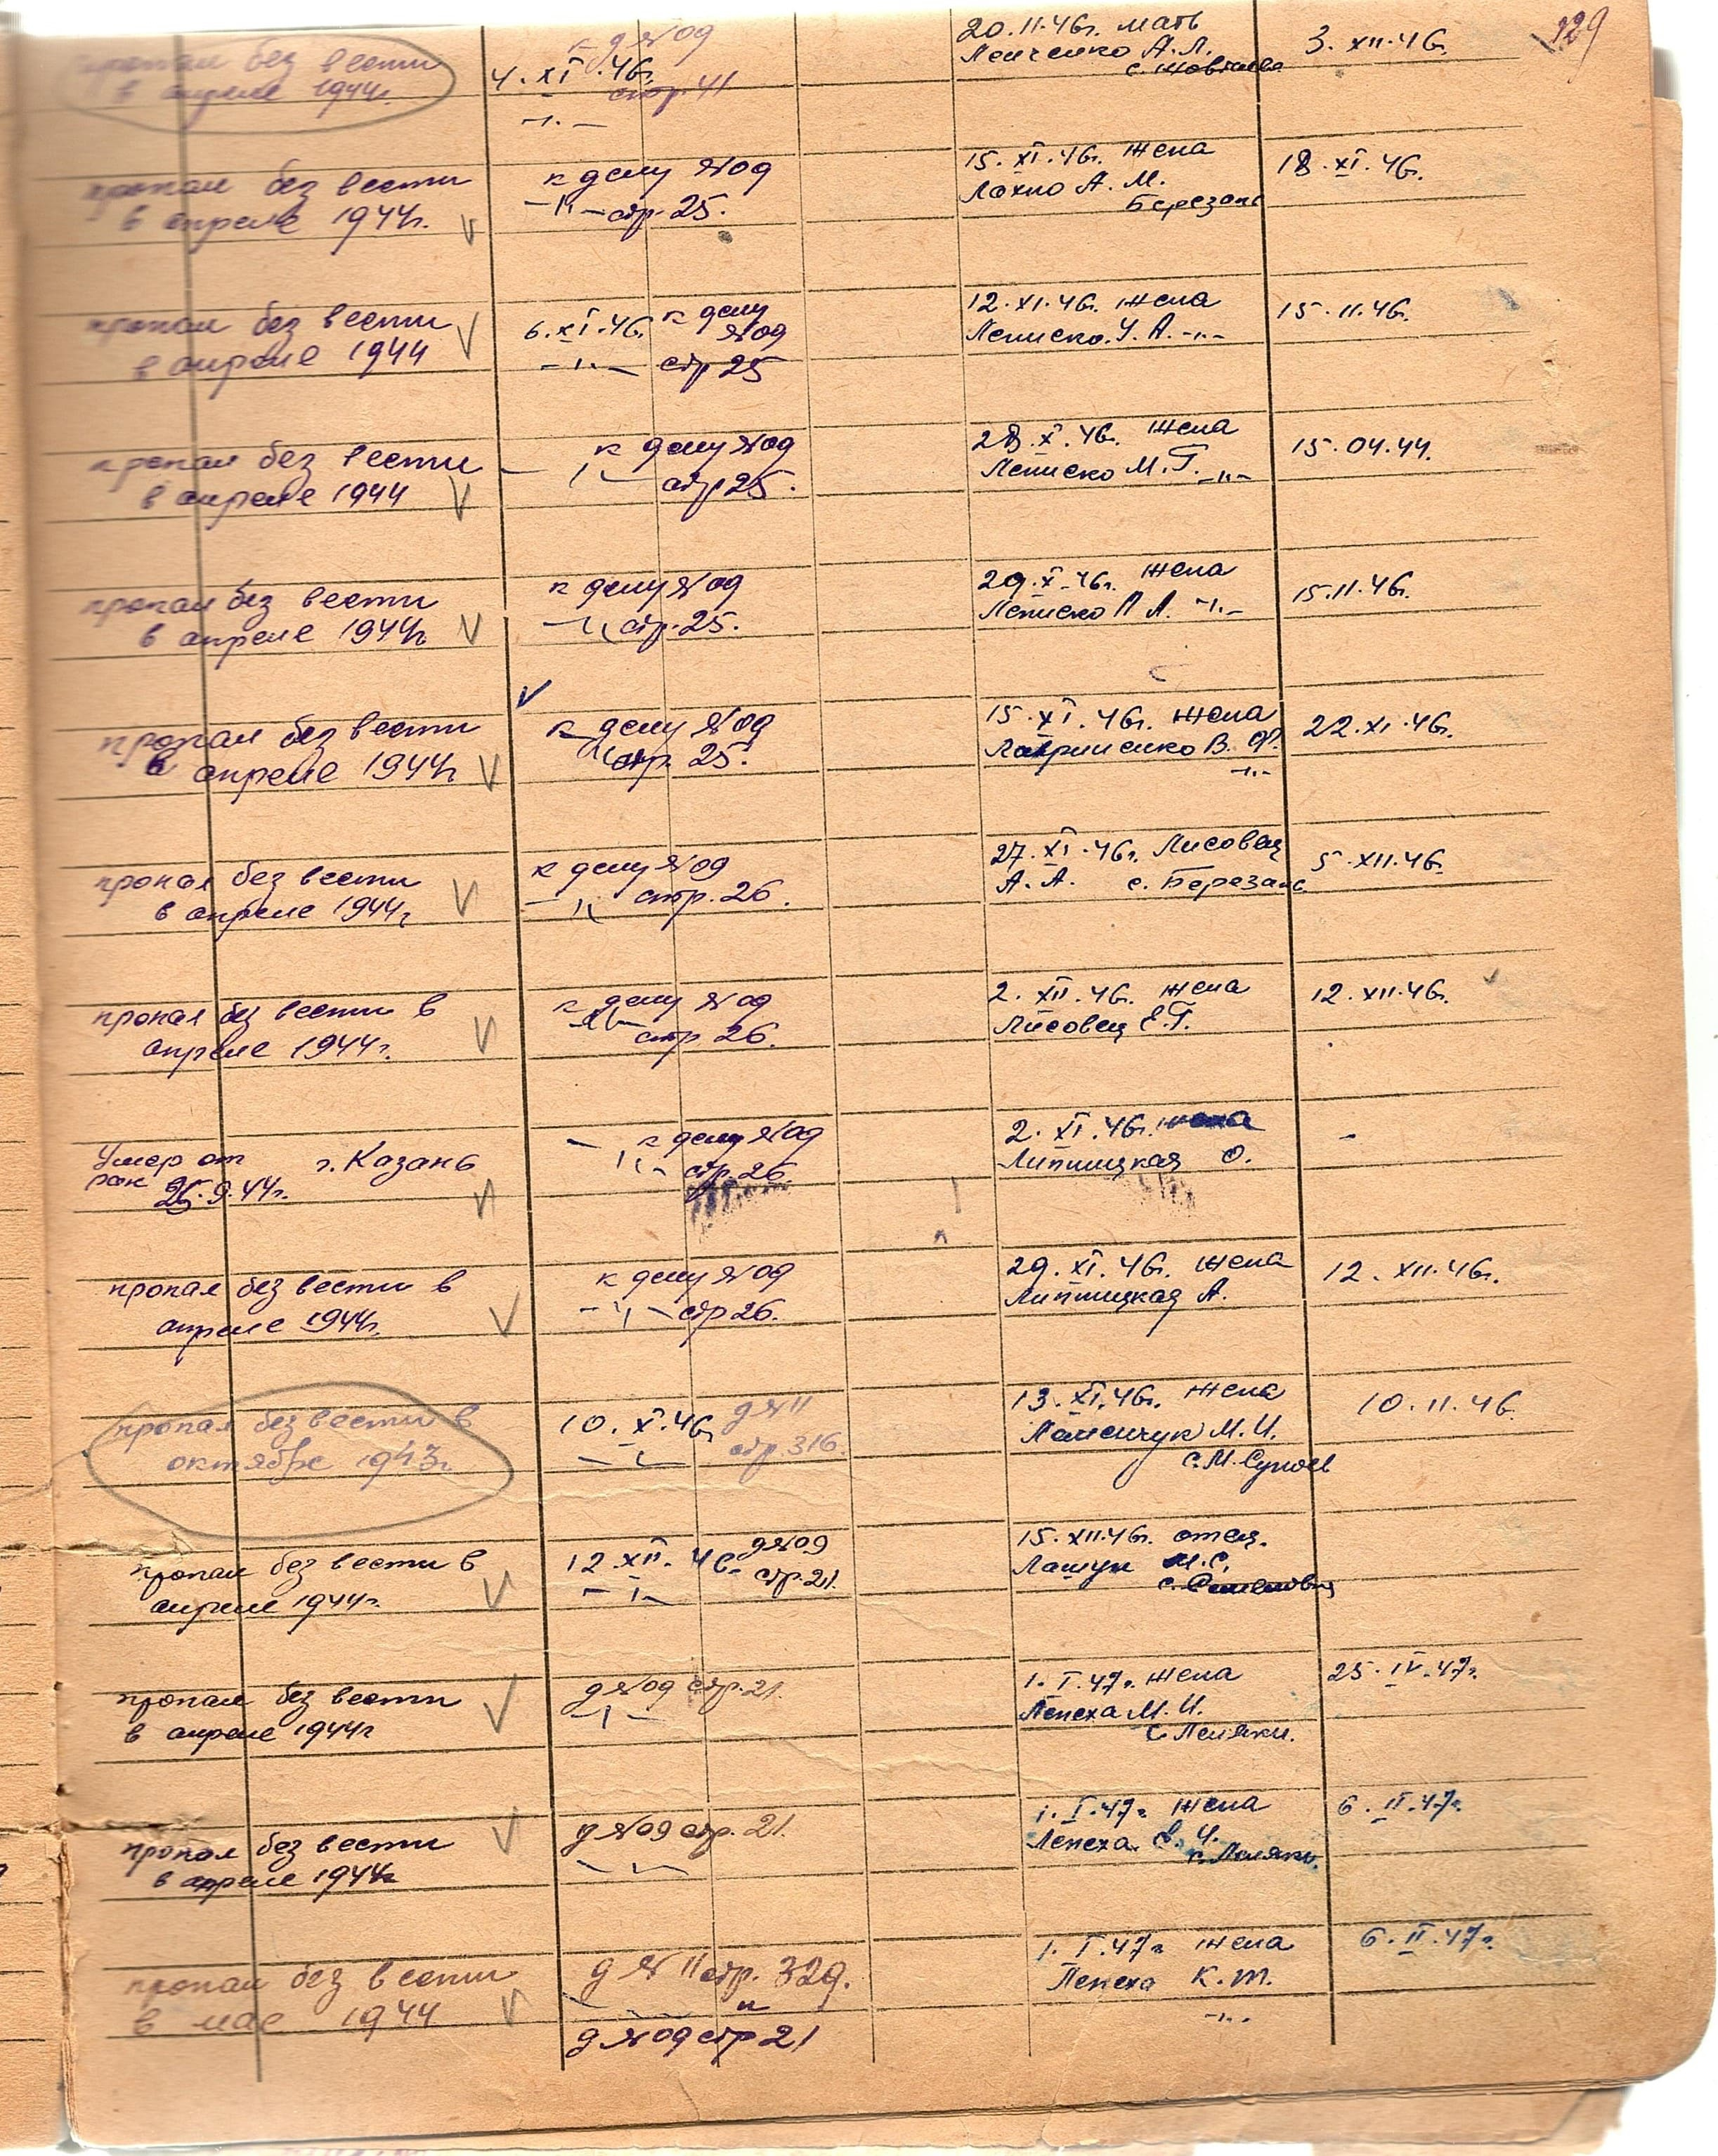 129
пропал без вести
в апреле 1944г.
4.XI.46г.
д №09
стр. 41
20.11.46г. мать
Ленченко А.Л.
3.XII.46
пропал без вести
в апреле 1944г.
к делу №09
стр. 25.
15.XI.46г. жена
Лохно А. М.
Березань
18.XI.46г.
пропал без вести
в апреле 1944
6.XI.46г. к делу
№09
стр 25
12.XI.46г. жена
Леписко У. А. -"-
15.11.46г.
пропал без вести
в апреле 1944
к делу №09
стр 25.
28.X.46г. жена
Леписко М.Г. -"-
15.04.44.
пропал без вести
в апреле 1944г
к делу №09
стр. 25.
29.X.46г. жена
Леписко П А. -"-
15.11.46г.
пропал без вести
в апреле 1944г
к делу №09
стр. 25.
15.XI.46г. жена
Лавриненко В. Ф.
-"-
22.XI.46г.
пропал без вести
в апреле 1944г
к делу №09
стр. 26.
27.XI.46г. Лисовец
А. А. с. Березань
5.XII.46г.
пропал без вести в
апреле 1944г.
к делу №09
стр 26.
2.XII.46г. жена
Лисовец Е.Г.
12.XII.46г.
Умер от г. Казань
ран 25.9.44г.
к делу №09
стр. 26.
2.XI.46г. жена
Липницкая О.
-
пропал без вести в
апреле 1944г.
к делу №09
стр 26.
29.XI.46г. жена
Липницкая А.
12.XII.46г.
пропал без вести в
октябре 1943г.
10.X.46г
д №11
стр. 316.
13.XI.46г. жена
М.И.
с. М. Супоев
10.11.46
пропал без вести в
апреле 1944г.
12.XII.46
д №09
стр. 21.
15.XII.46г. отец.
Лашук М.С.
пропал без вести
в апреле 1944г
д №09 стр. 21.
1.I.47г. жена
Лепеха М.И.
с Пелики.
25.IV.47г.
пропал без вести
в апреле 1944г
д №09 стр. 21.
1.I.47г жена
Лепеха
6.II.47г.
пропал без вести
в мае 1944
д №11 стр. 329.
и
д №09 стр 21
1.I.47г жена
Лепеха К.Т.
-"-
6.II.47г.